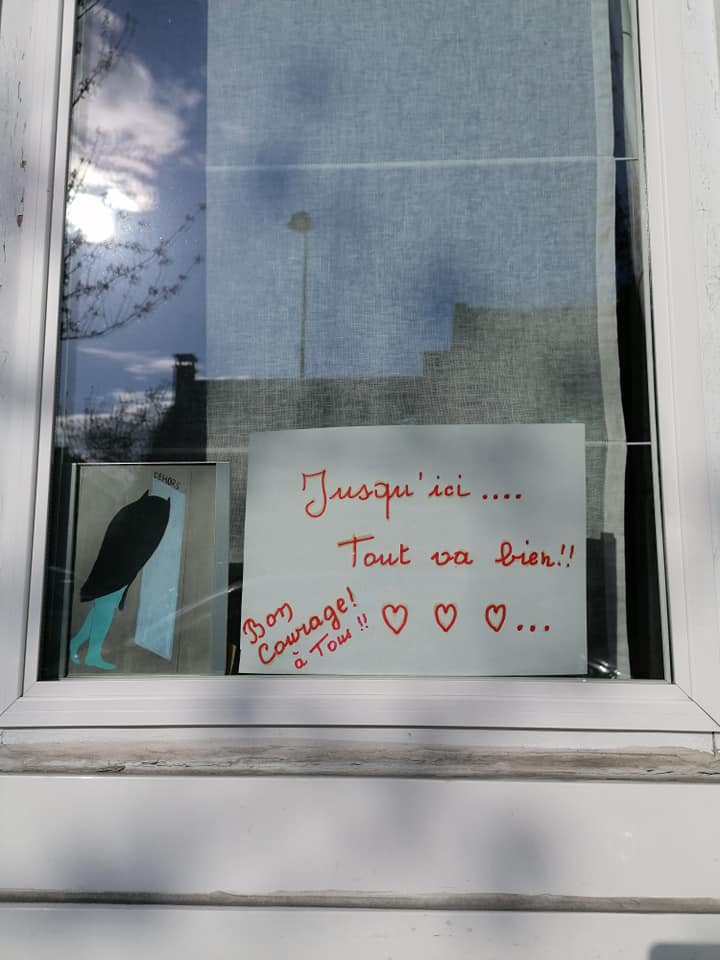 DEHORS
Jusqu'ici ....
Tout va bien!!
Bon
Courage!
à Tous !!